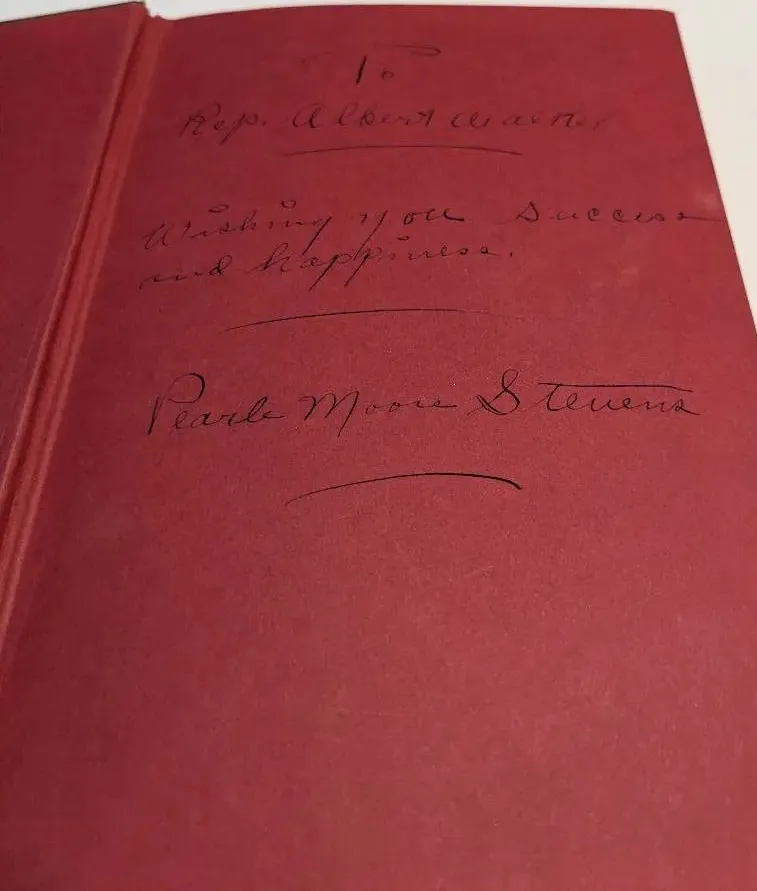 To
Rep. Albert Walker
Wishing you success
and happiness.
Pearle Moore Stevens